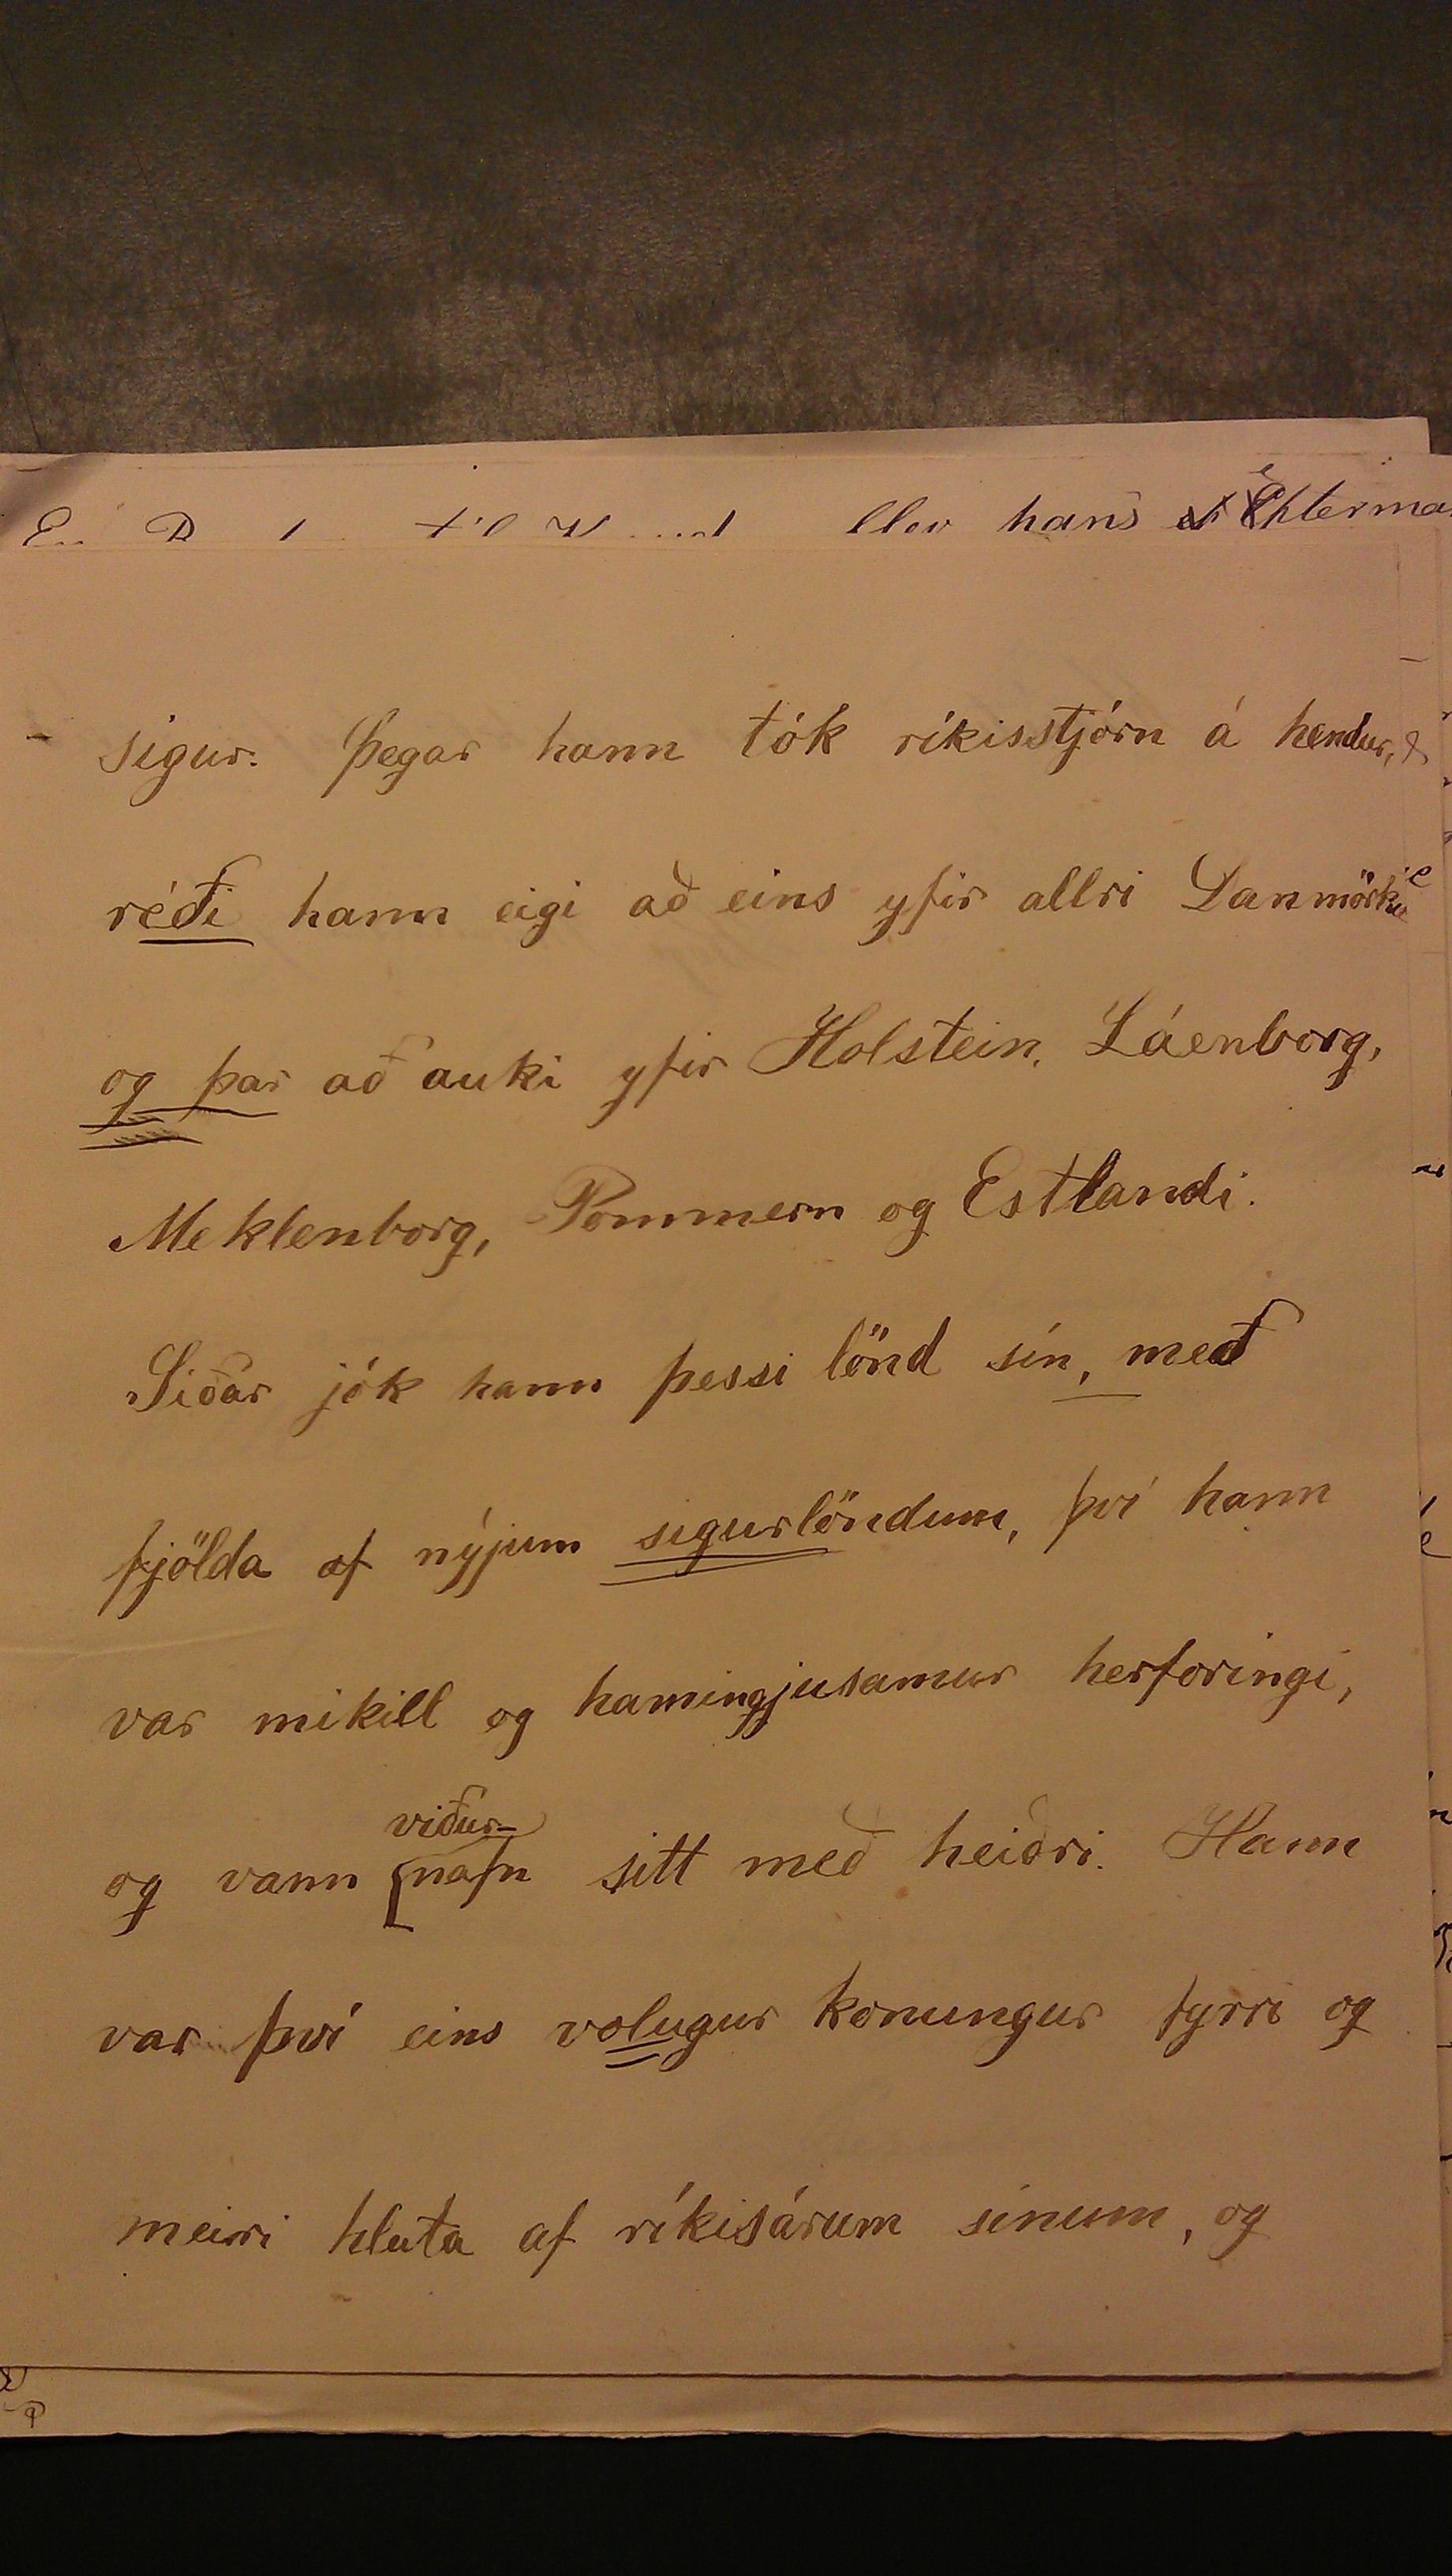 hans
sigur. Þegar hann tók ríkisstjórn á hendur,
réði hann eigi að eins yfir allri Danmörku
og þar að auki yfir Holstein, Láenborg,
Meklenborg, Pommern og Estlandi.
Síðar jók hann þessi lönd sín, með
fjölda af nýjum sigurlöndum, því hann
var mikill og hamingjusamur herforingi,
viður-
og vann nafn sitt með heiðri. Hann
var því eins volugur konungur fyrri og
meiri hluta af ríkisárum sínum, og